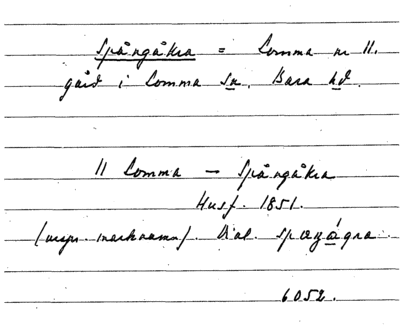 Spångåkra = Lomma nr 11.
gård i Lomma sn. Bara hd.
11 Lomma — Spångåkra
Husf. 1851.
(urspr. marknamn). Dial. spæŋågra
6052.